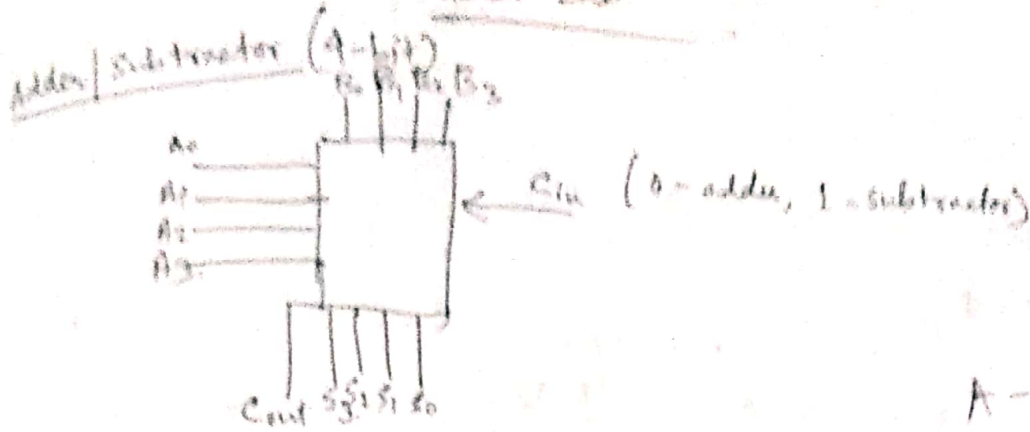 Adder/Subtractor (4-bit)
B0 B1 B2 B3
A0
A1
A2
A3
Cin (0-adder, 1-subtractor)
Cout S3 S2 S1 S0
A -